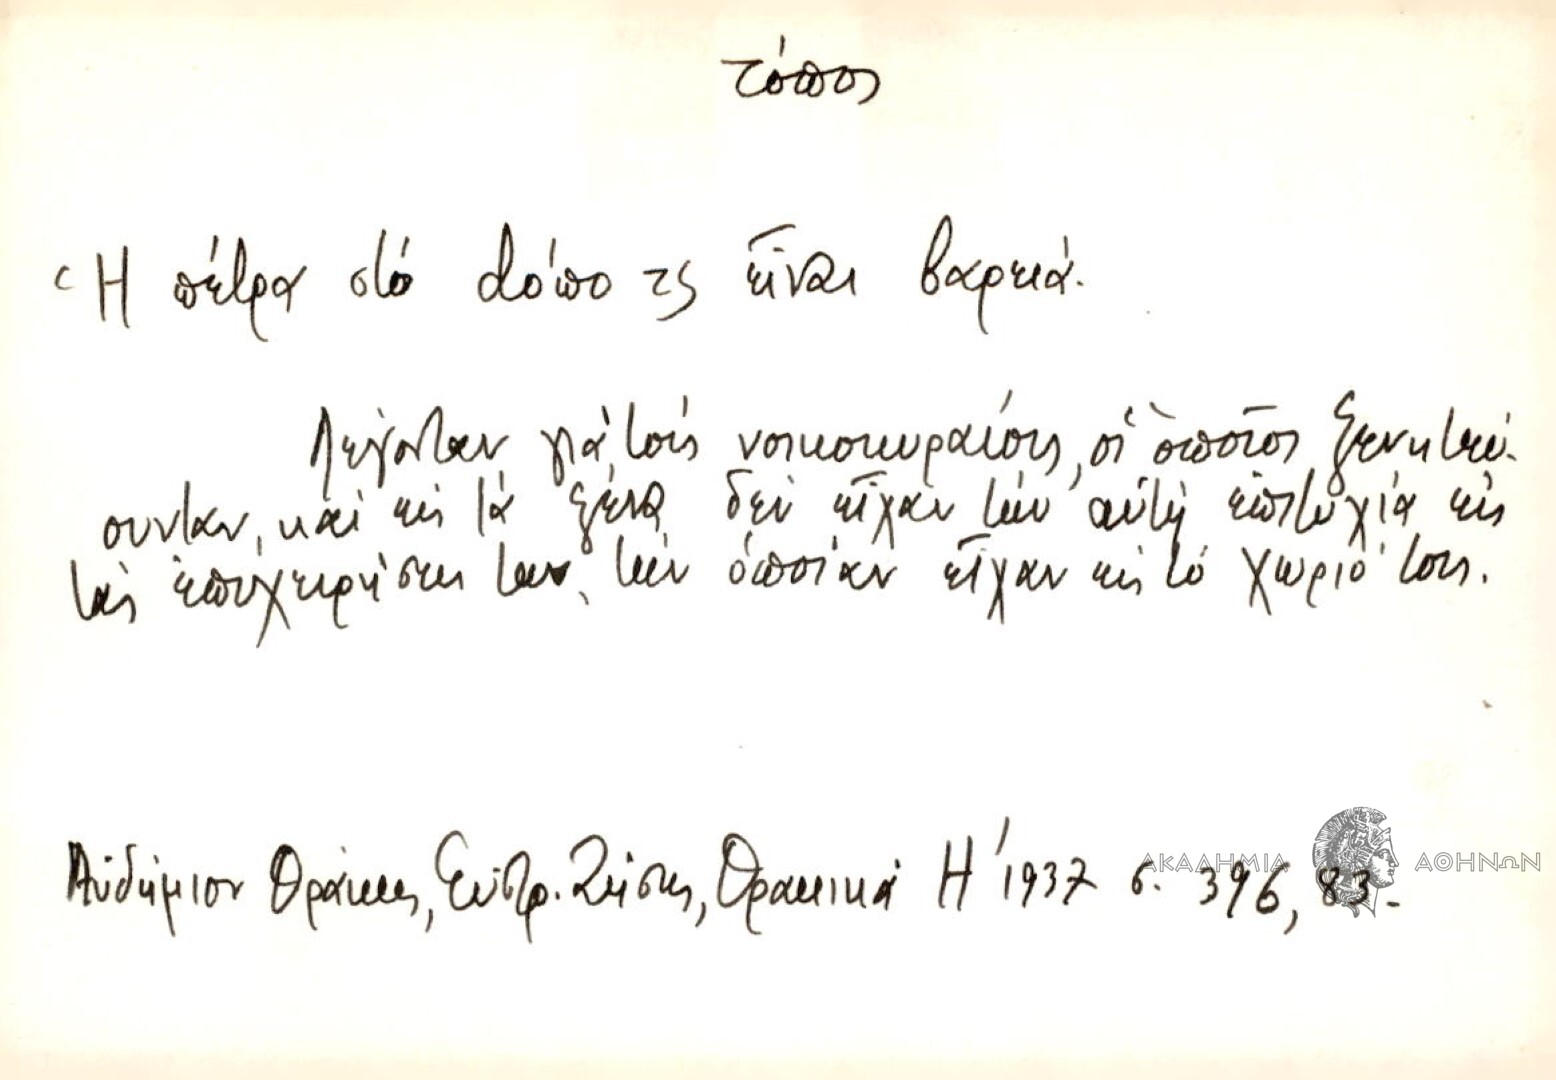 τόπος
Ἡ πέτρα στό dόπο τς εἶναι βαρειά.
Λεγόταν γιά τούς νοικοκυραίους, οἱ ὁποῖοι ξενητεύ-
ουνταν, καί εἰς τά ξένα δέν εἶχαν τήν αὐτή ἐπιτυχία εἰς
τάς ἐπιχειρήσεις των, τήν ὁποίαν εἶχαν εἰς τό χωριό τους.
Αὐδήμιον Θράκης, Εὐστρ. Ζήσης, Θρακικά Η' 1937 σ. 396, 83.
ΑΚΑΔΗΜΙΑ ΑΘΗΝΩΝ